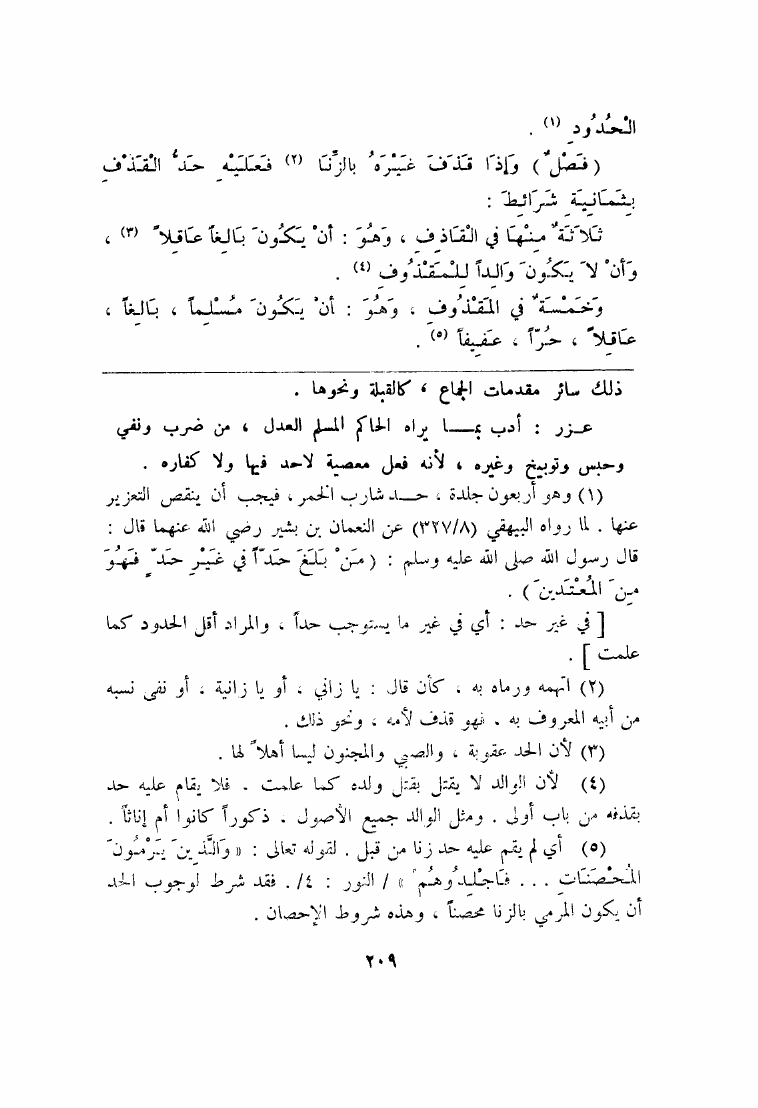 الْحُدُودِ (١) .
( فَصْلٌ ) وَإِذَا قَذَفَ غَيْرَهُ بِالزِّنَا (٢) فَعَلَيْهِ حَدُّ الْقَذْفِ
بِثَمَانِيَةِ شَرَائِطَ :
ثَلَاثَةٌ مِنْهَا فِي الْقَاذِفِ ، وَهُوَ : أَنْ يَكُونَ بَالِغاً عَاقِلاً (٣) ،
وَأَنْ لاَ يَكُونَ وَالِداً لِلْمَقْذُوفِ (٤) .
وَخَمْسَةٌ فِي الْمَقْذُوفِ ، وَهُوَ : أَنْ يَكُونَ مُسْلِماً ، بَالِغاً ،
عَاقِلاً ، حُرّاً ، عَفِيفاً (٥) .
ذلك سائر مقدمات الجماع ، كالقبلة ونحوها .
عـزر : أدب بمـــا يراه الحاكم المسلم العدل ، من ضرب ونفي
وحبس وتوبيخ وغيره ، لأنه فعل معصية لاحد فيها ولا كفاره .
(١) وهو أربعون جلدة ، حـــد شارب الخمر ، فيجب أن ينقص التعزير
عنها . لما رواه البيهقي (٣٢٧/٨) عن النعمان بن بشير رضي الله عنهما قال :
قال رسول الله صلى الله عليه وسلم : ( مَنْ بَلَغَ حَدّاً فِي غَيْرِ حَدٍّ فَهُوَ
مِنَ الْمُعْتَدِينَ ) .
[ في غير حد : أي في غير ما يستوجب حداً ، والمراد أقل الحدود كما
علمت ] .
(٢) اتهمه ورماه به ، كأن قال : يا زاني ، أو يا زانية ، أو نفى نسبه
من أبيه المعروف به . فهو قذف لأمه ، ونحو ذلك .
(٣) لأن الحد عقوبة ، والصبي والمجنون ليسا أهلاً لها .
(٤) لأن الوالد لا يقتل بقتل ولده كما علمت . فلا يقام عليه حد
بقذفه من باب أولى . ومثل الوالد جميع الأصول . ذكوراً كانوا أم إناثاً .
(٥) أي لم يقم عليه حد زنا من قبل . لقوله تعالى : « وَالَّذِينَ يَرْمُونَ
الْمُحْصَنَاتِ ... فَاجْلِدُوهُمْ » / النور : ٤/. فقد شرط لوجوب الحد
أن يكون المرمي بالزنا محصناً ، وهذه شروط الإحصان .
٢٠٩